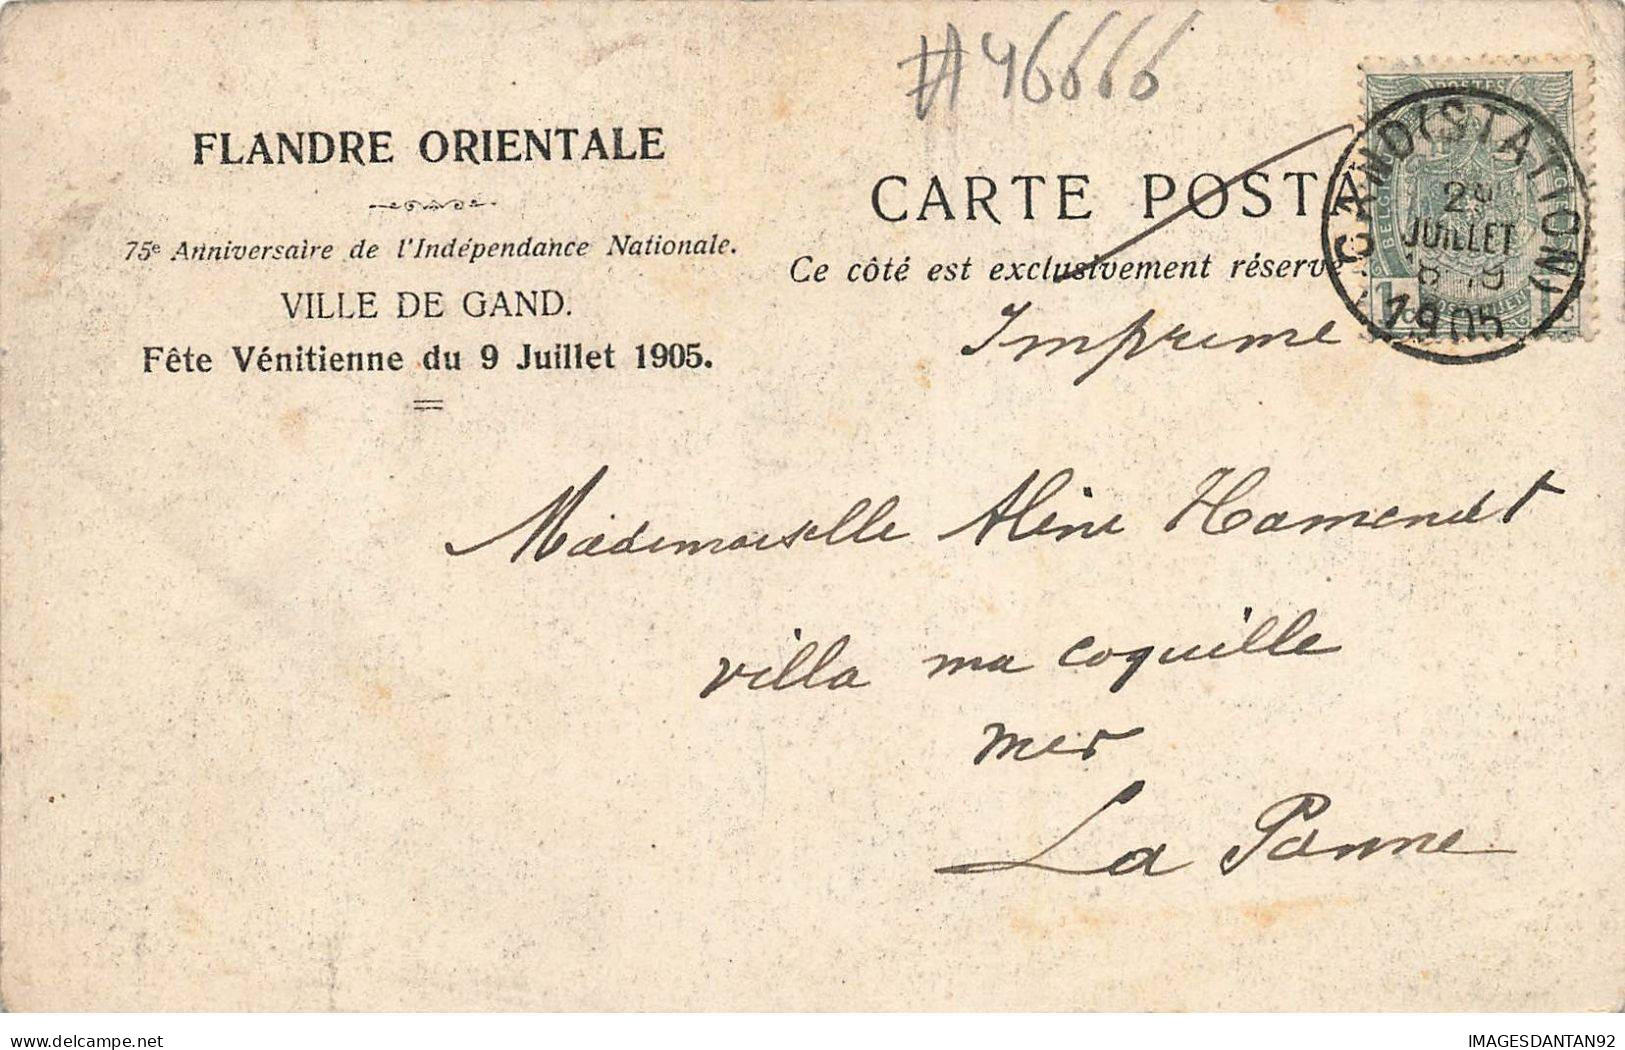 #46666
FLANDRE ORIENTALE
75e Anniversaire de l'Indépendance Nationale.
VILLE DE GAND.
Fête Vénitienne du 9 Juillet 1905.
CARTE POSTA
Ce côté est exclusivement réservé
GAND (STATION)
JUILLET
1905
Imprime
Mademoiselle Aline
villa ma coquille
mer
La Panne
delcampe.net
IMAGESDANTAN92